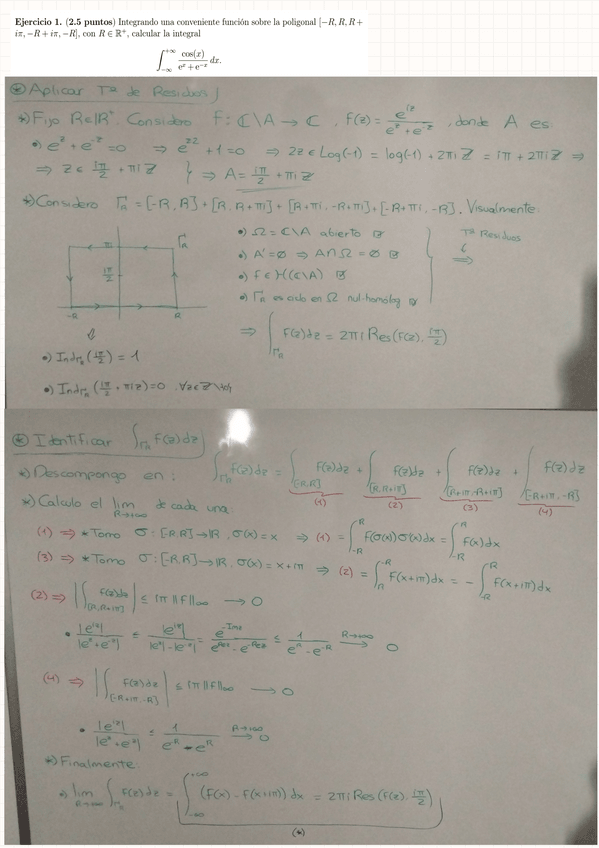 Ejercicio 1. (2.5 puntos) Integrando una conveniente función sobre la poligonal [−R, R, R +
iπ, −R + iπ, −R], con R ∈ ℝ⁺, calcular la integral
∫_{−∞}^{+∞} cos(x) / (eˣ + e⁻ˣ) dx.
⊛ Aplicar Tª de Residuos
*) Fijo R∈ℝ⁺. Considero f: ℂ\A → ℂ, f(z) = e^{iz} / (e^z + e^{-z}), donde A es:
•) e^z + e^{-z} = 0 ⇒ e^{2z} + 1 = 0 ⇒ 2z ∈ Log(-1) = log(-1) + 2πiℤ = iπ + 2πiℤ ⇒
⇒ z ∈ iπ/2 + πiℤ } ⇒ A = iπ/2 + πiℤ
*) Considero Γ_R = [-R, R] + [R, R+πi] + [R+πi, -R+πi] + [-R+πi, -R]. Visualmente:
•) Ω = ℂ\A abierto
•) A' = ∅ ⇒ A∩Ω = ∅
•) f ∈ H(ℂ\A)
•) Γ_R es ciclo en Ω nul-homólog
Tª Residuos
⇒
πi
Γ_R
iπ/2
-R
R
⇒ ∫_{Γ_R} f(z)dz = 2πi Res(f(z), iπ/2)
•) Ind_{Γ_R}(iπ/2) = 1
•) Ind_{Γ_R}(iπ/2 + πiz) = 0, ∀z∈ℤ\
⊛ Identificar ∫_{Γ_R} f(z)dz
*) Descompongo en: ∫_{Γ_R} f(z)dz = ∫_{[-R,R]} f(z)dz + ∫_{[R,R+iπ]} f(z)dz + ∫_{[R+iπ,-R+iπ]} f(z)dz + ∫_{[-R+iπ,-R]} f(z)dz
(1) (2) (3) (4)
*) Calculo el lim_{R→+∞} de cada una:
(1) ⇒ * Tomo σ: [-R,R] → ℝ, σ(x) = x ⇒ (1) = ∫_{-R}^{R} f(σ(x))σ(x)dx = ∫_{-R}^{R} f(x)dx
(3) ⇒ * Tomo σ: [-R,R] → ℝ, σ(x) = x+iπ ⇒ (2) = ∫_{R}^{-R} f(x+iπ)dx = -∫_{-R}^{R} f(x+iπ)dx
(2) ⇒ |∫_{[R,R+iπ]} f(z)dz| ≤ |π ||f||_∞ → 0
• |e^{iz}| / |e^z + e^{-z}| ≤ |e^{iz}| / (|e^z| - |e^{-z}|) = e^{-Imz} / (e^{Rez} - e^{-Rez}) ≤ 1 / (e^R - e^{-R}) →^{R→+∞} 0
(4) ⇒ |∫_{[-R+iπ,-R]} f(z)dz| ≤ |π ||f||_∞ → 0
• |e^{iz}| / |e^z + e^{-z}| ≤ 1 / (e^R - e^{-R}) →^{R→+∞} 0
*) Finalmente:
•) lim_{R→+∞} ∫_{Γ_R} f(z)dz = ∫_{-∞}^{+∞} (f(x) - f(x+iπ)) dx = 2πi Res(f(z), iπ/2)
(*)